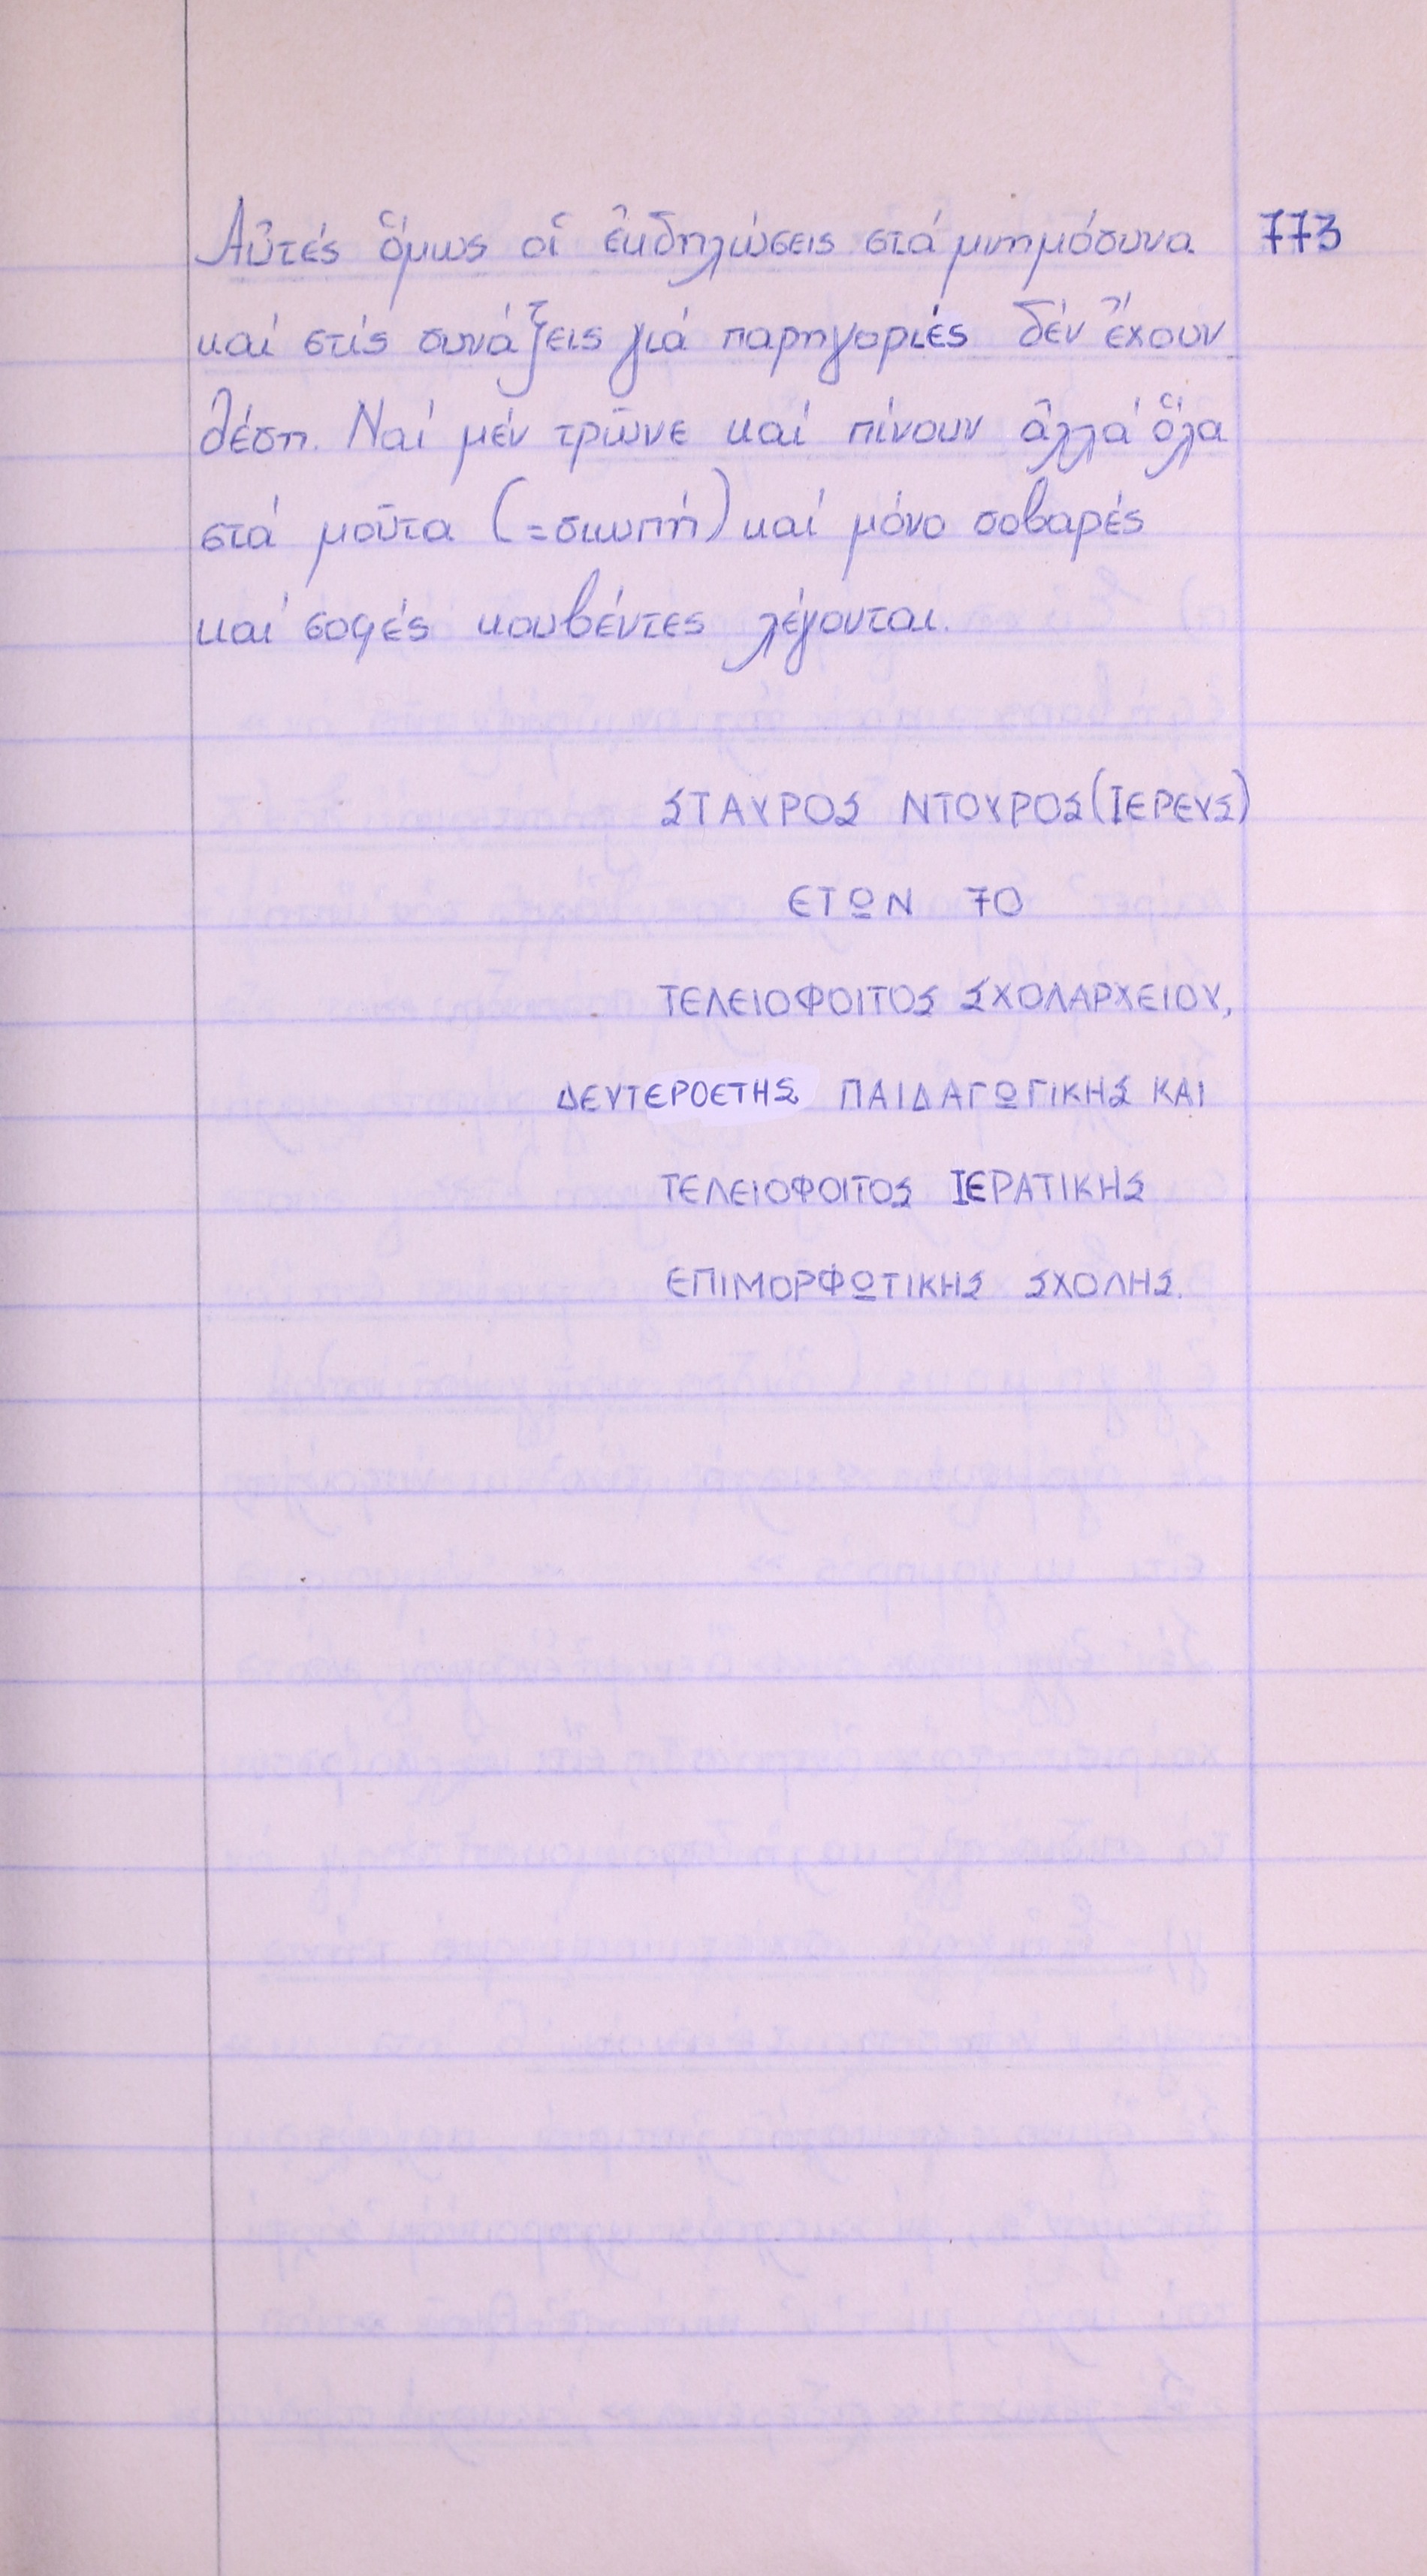 Αὐτές ὅμως οἱ ἐκδηλώσεις στά μνημόσυνα 773
καί στίς συνάξεις γιά παρηγοριές δέν ἔχουν
θέση. Ναί μέν τρῶνε καί πίνουν ἀλλά ὅλα
στά μοῦτα (=σιωπή) καί μόνο σοβαρές
καί σοφές κουβέντες λέγονται.
ΣΤΑΥΡΟΣ ΝΤΟΥΡΟΣ (ΙΕΡΕΥΣ)
ΕΤΩΝ 70
ΤΕΛΕΙΟΦΟΙΤΟΣ ΣΧΟΛΑΡΧΕΙΟΥ,
ΔΕΥΤΕΡΟΕΤΗΣ ΠΑΙΔΑΓΩΓΙΚΗΣ ΚΑΙ
ΤΕΛΕΙΟΦΟΙΤΟΣ ΙΕΡΑΤΙΚΗΣ
ΕΠΙΜΟΡΦΩΤΙΚΗΣ ΣΧΟΛΗΣ.